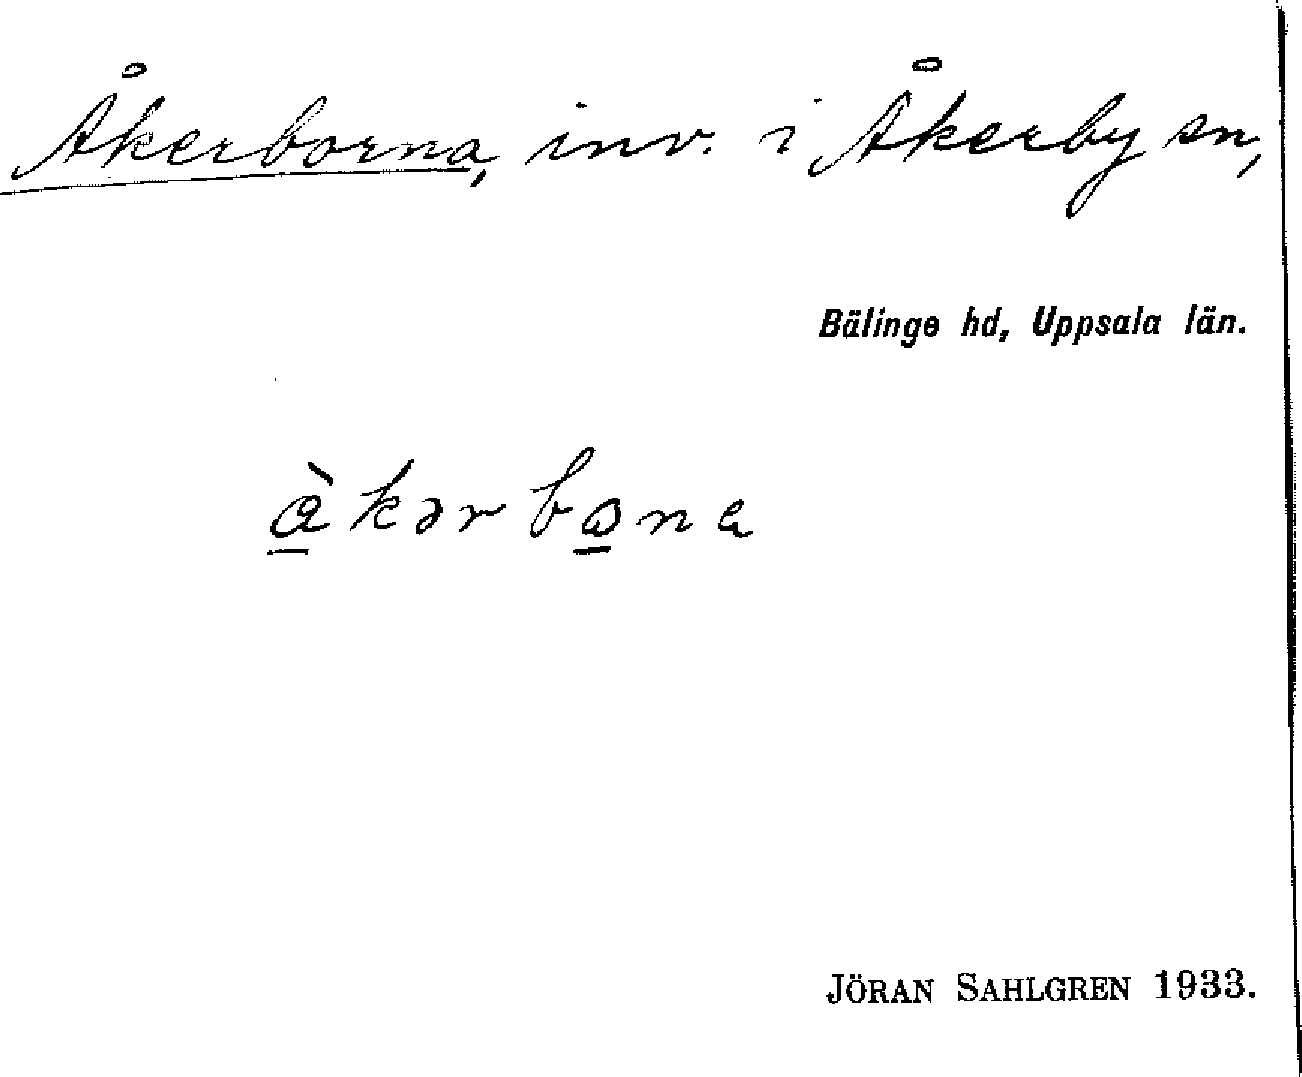 Åkerborna, inv. i Åkerby sn,
Bälinge hd, Uppsala län.
à̲kərbo̲na
JÖRAN SAHLGREN 1933.